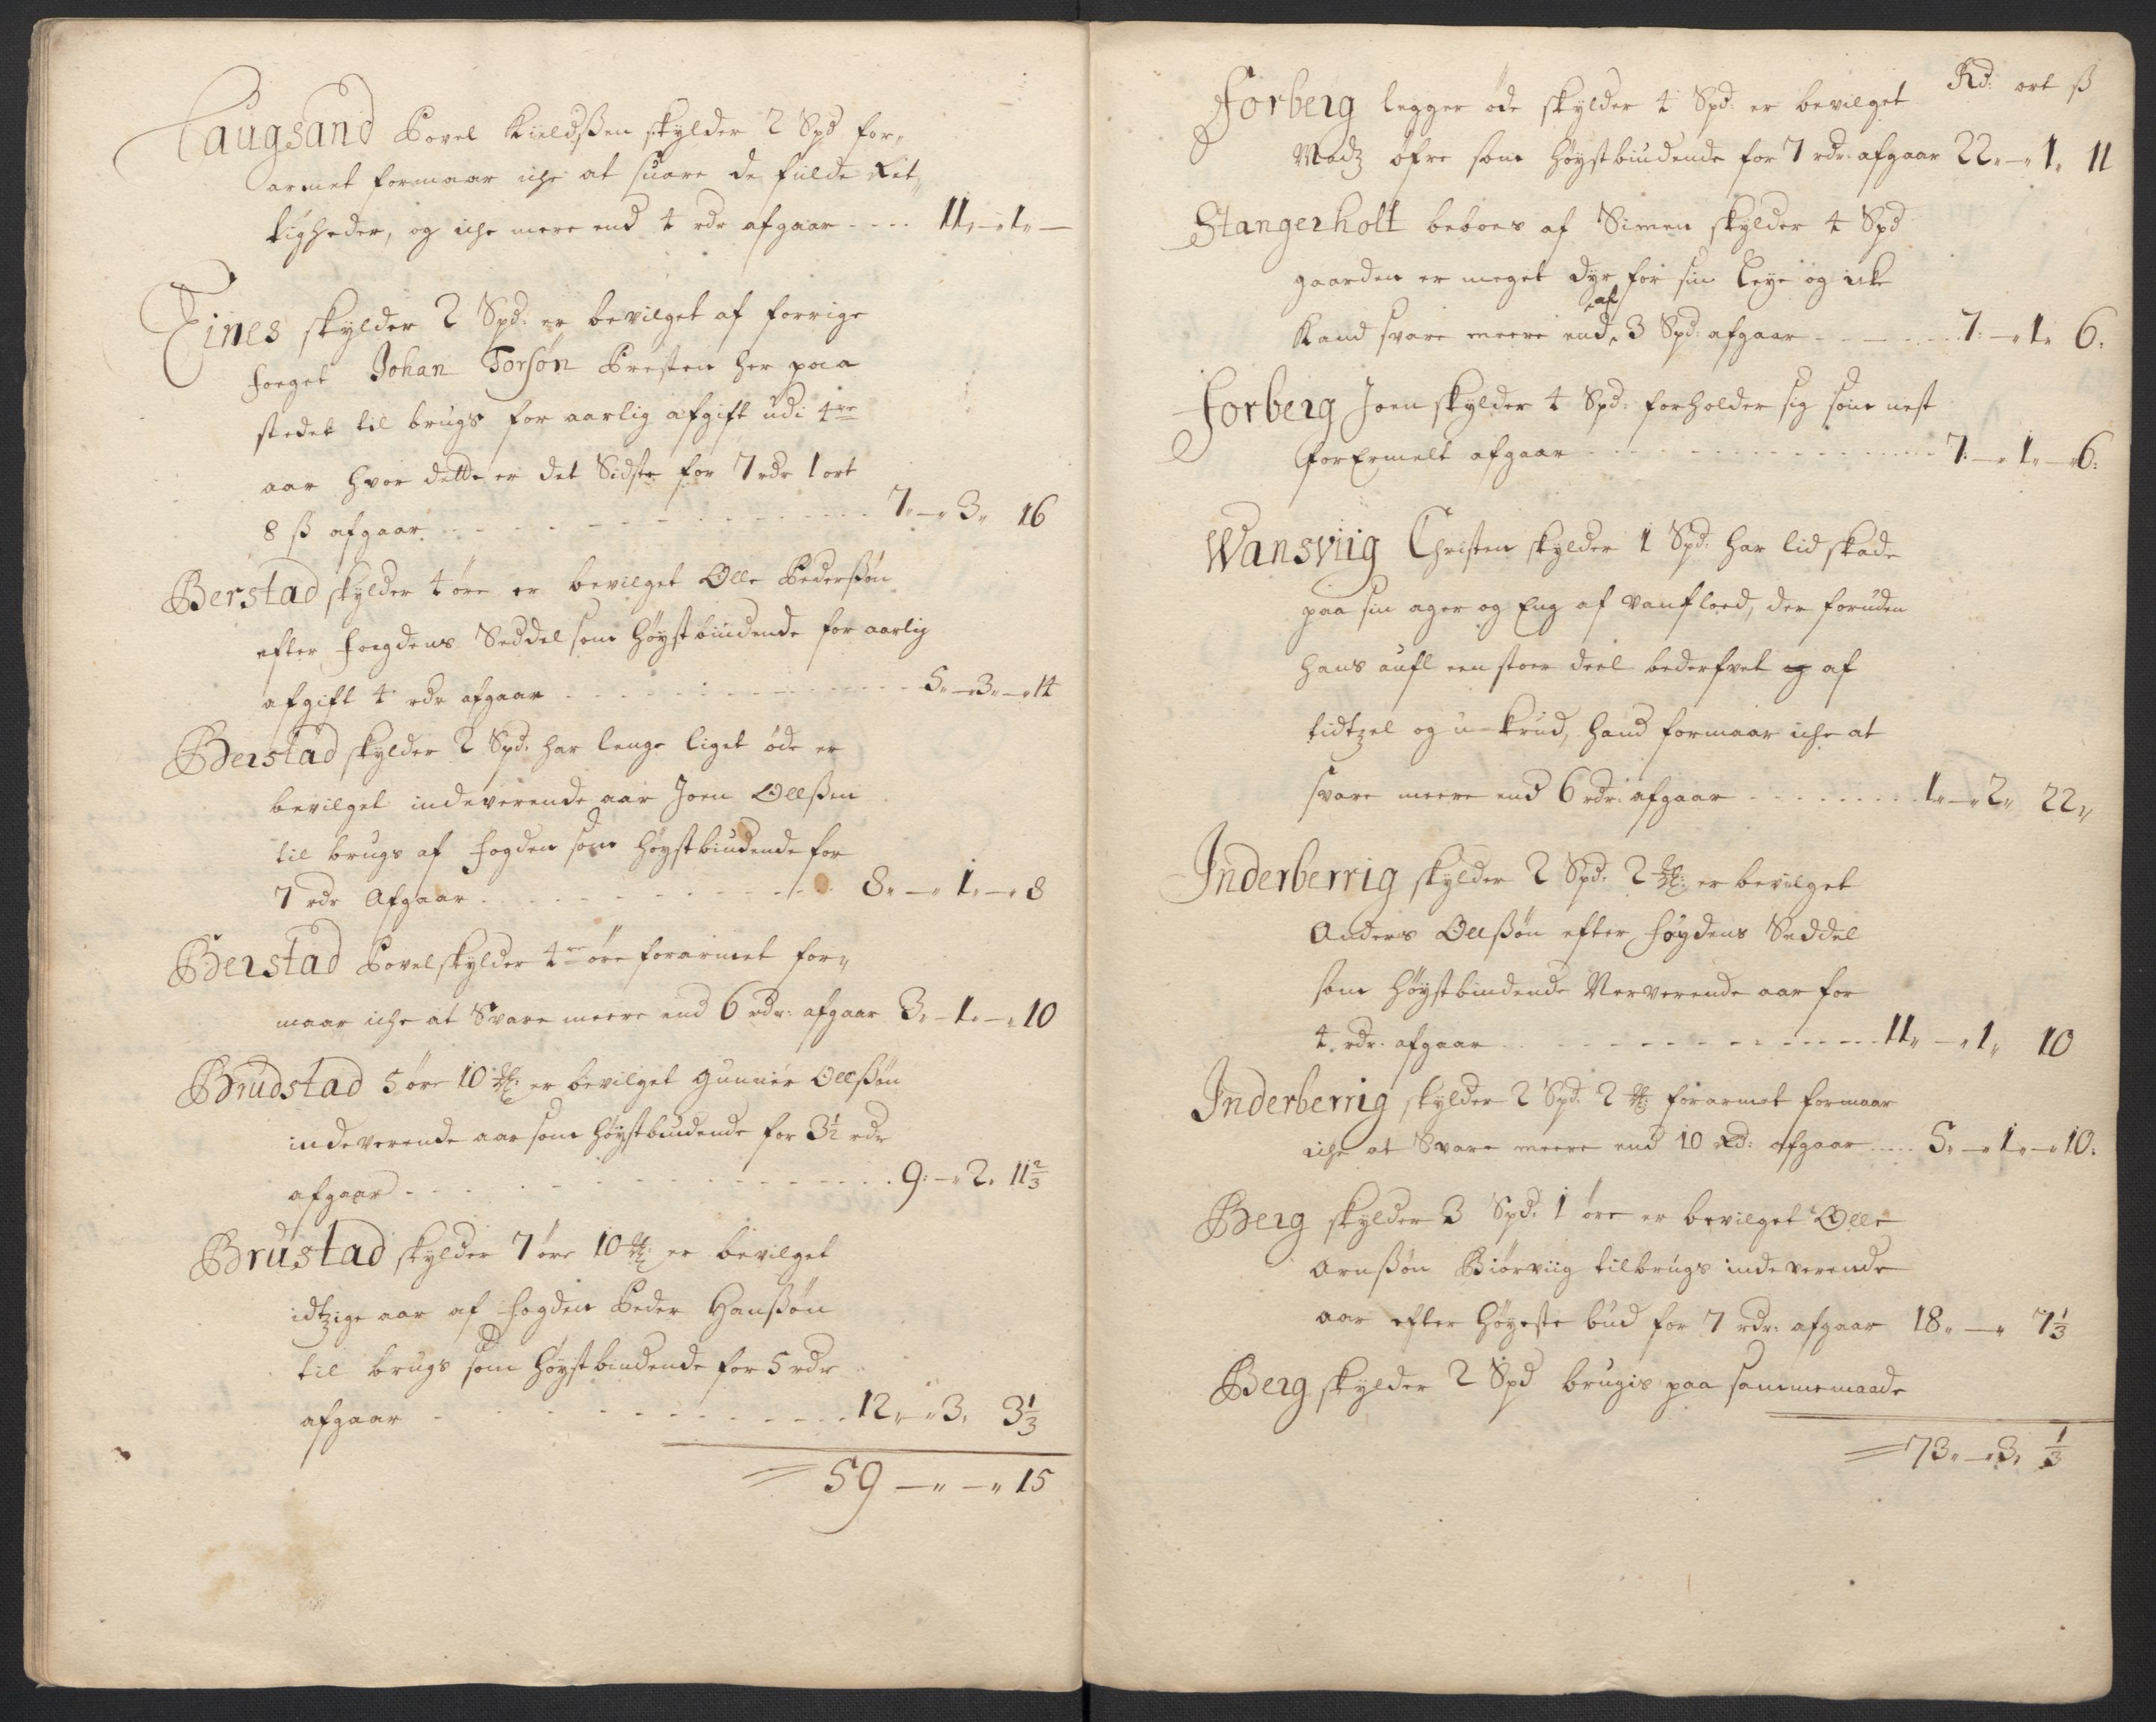 Laugsand Povel Kieldßen skylder 2 Spd for„
armet formaar iche at suare de fulde Ret„
tigheder, og iche mere end 4 rdr afgaar ---- 11„—„1„—
Eines skylder 2 Spd: er bevilget af forrige
foeget Johan Torsøn Presten her paa
stedet til brugs for aarlig afgift udi 4re
aar hvor dette er det Sidste for 7 rdr 1 ort
8 ß afgaar. ---- 7„—„3„ 16
Berstad skylder 4 öre er bevilget Olle Pederßøn
efter fogdens Seddel som høystbiudende for aarlig
afgift 4 rdr afgaar ---- 5„—3„—„14
Berstad skylder 2 Spd: har lenge liget øde er
bevilget indeverende aar Joen Ollßen
til brugs af fogden som høystbiudende for
7 rdr Afgaar ---- 8„—„1„—„8
Berstad Povel skylder 4re öre forarmet for„
maar iche at Svare meere end 6 rdr: afgaar 3„—1„—„10
Brudstad 5 öre 10 ℔: er bevilget Gunner Ollßøn
indeverende aar som høystbiudende for 3½ rdr
afgaar ---- 9:—„2„ 11⅔
Brustad skylder 7 öre 10 ℔: er bevilget
idtzige aar af fogden Peder Hanßøn
til brugs som høystbiudende for 5 rdr
afgaar ---- 12„—„3„ 3⅓
59—„—„15
Rd: ort ß
Forberg legger øde skylder 4 Spd: er bevilget
Madz øfre som høystbiudende for 7 rdr: afgaar 22„—„1„ 11
Stangerholt beboes af Simen skylder 4 Spd
gaarden er meget dyr for sin leye og icke
af
Kand svare meere end 3 Spd: afgaar ---- 7:—„1„ 6:
Forberg Joen skylder 4 Spd: forholder sig som nest
for Ermelt afgaar ---- 7:—„1„—„6:
Wansviig Christen skylder 1 Spd: har lid skade
paa sin ager og Eng af vanfloed, der foruden
hans aufl een stoer deel bederfvet og af
tidtzel og u-krud, hand formaar iche at
svare meere end 6 rdr: afgaar ---- 1„—„2„ 22„
Inderberrig skylder 2 Spd: 2 ℔: er bevilget
Anders Ollßøn efter fogdens Seddel
som høystbiudende Nerverende aar for
4 rdr: afgaar ---- 11„—„1„ 10
Inderberrig skylder 2 Spd: 2 ℔: forarmet formaar
iche at Svare meere end 10 Rd: afgaar ---- 5„—„1„—„10:
Berg skylder 3 Spd: 1 öre er bevilget Olle
Arnßøn Biørviig til brugs indeverende
aar efter høyeste bud for 7 rdr: afgaar 18„—„ 7⅓
Berg skylder 2 Spd brugis paa sammemaade
73„—„3„ ⅓